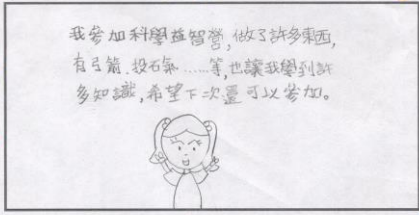 我參加科學益智營,做了許多東西,
有弓箭、投石氣……等,也讓我學到許
多知識,希望下次還可以參加。